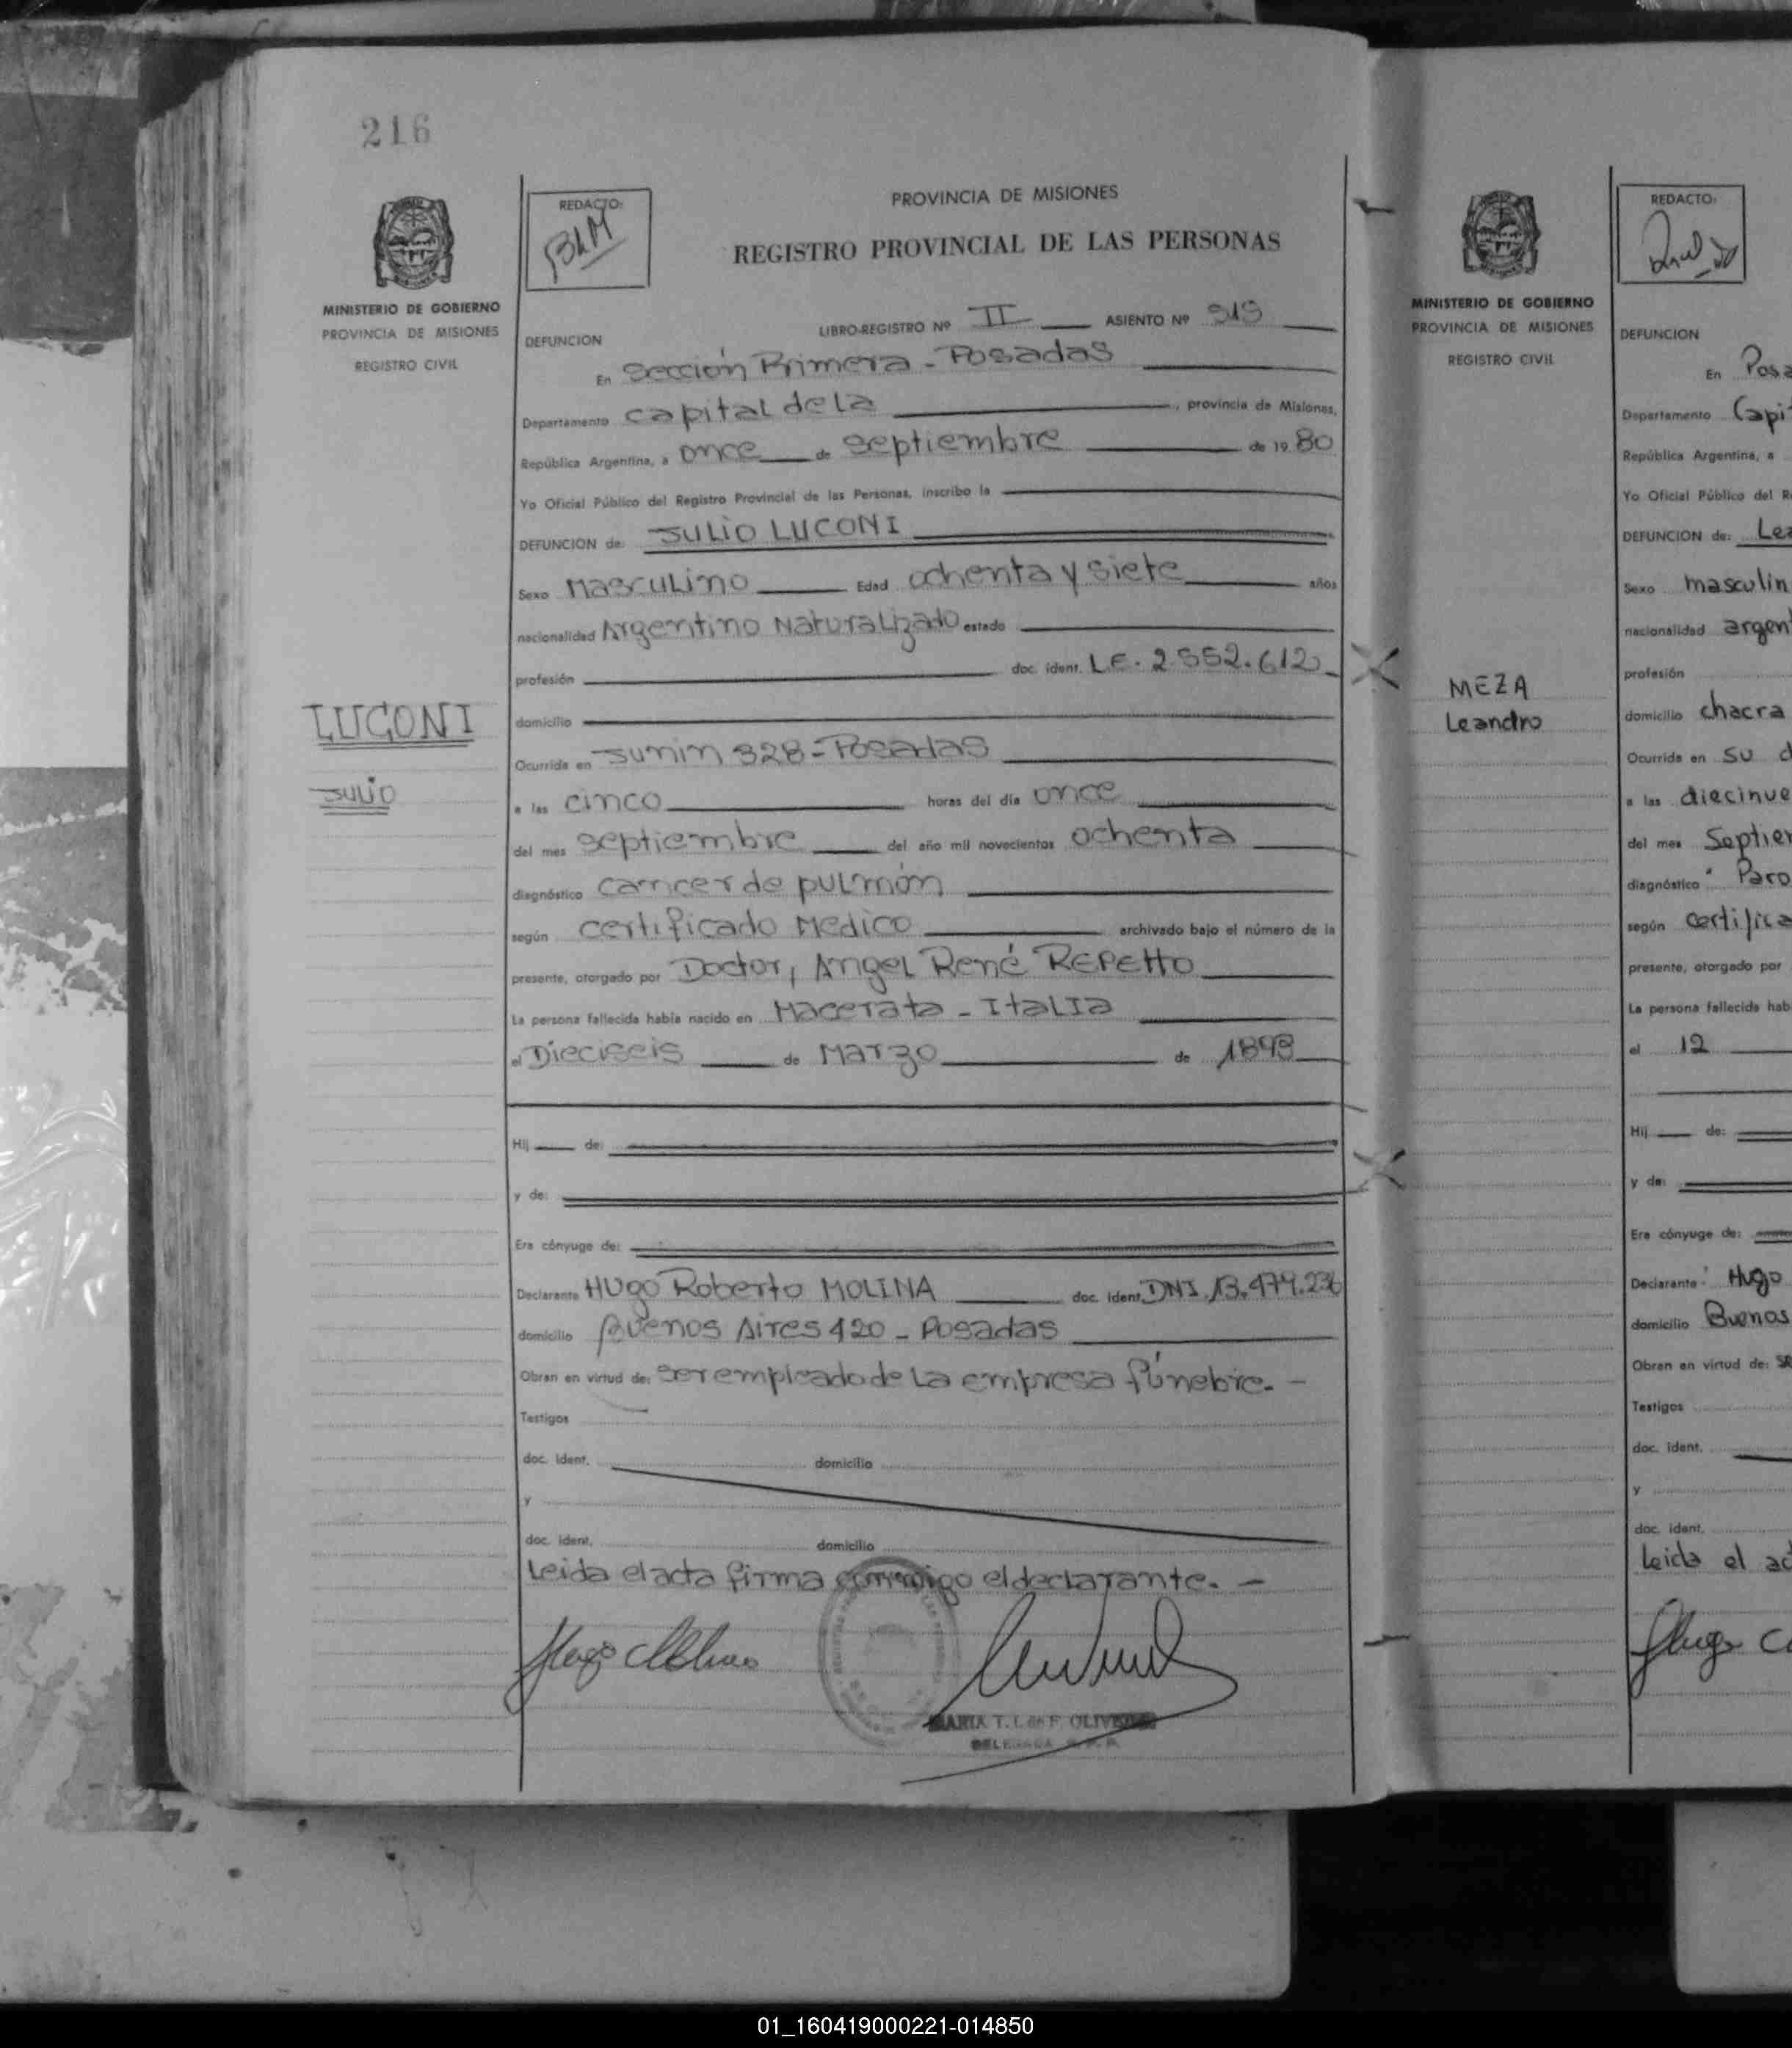 216
MINISTERIO DE GOBIERNO
PROVINCIA DE MISIONES
REGISTRO CIVIL
LUCONI
JULIO
REDACTO:
BLM
PROVINCIA DE MISIONES
REGISTRO PROVINCIAL DE LAS PERSONAS
LIBRO-REGISTRO Nº II ASIENTO Nº 515
DEFUNCION
En Sección Primera - Posadas
Departamento capital de la , provincia de Misiones,
República Argentina, a once de septiembre de 19 80
Yo Oficial Público del Registro Provincial de las Personas, inscribo la
DEFUNCION de: JULIO LUCONI
Sexo Masculino Edad ochenta y siete años
nacionalidad Argentino Naturalizado estado
profesión doc. ident. L.E. 2.552.612
domicilio
Ocurrida en Junin 328 - Posadas
a las cinco horas del día once
del mes septiembre del año mil novecientos ochenta
diagnóstico cancer de pulmón
según certificado Medico archivado bajo el número de la
presente, otorgado por Doctor, Angel René REPETTO
La persona fallecida había nacido en Macerata - ITALIA
el Dieciseis de Marzo de 1893
Hij de:
y de:
Era cónyuge de:
Declarante HUgo Roberto MOLINA doc. ident. DNI. 13.479.236
domicilio Buenos Aires 420 - Posadas
Obran en virtud de: ser empleado de la empresa fúnebre. -
Testigos
doc. ident. domicilio
y
doc. ident. domicilio
Leida el acta firma conmigo el declarante. -
Hugo Molina
MARIA T. L. de F. OLIVERA
MINISTERIO DE GOBIERNO
PROVINCIA DE MISIONES
REGISTRO CIVIL
MEZA
Leandro
REDACTO:
DEFUNCION
En Posa
Departamento Capi
República Argentina, a
Yo Oficial Público del R
DEFUNCION de: Lea
Sexo masculin
nacionalidad argen
profesión
domicilio chacra
Ocurrida en su d
a las diecinue
del mes Septie
diagnóstico " Paro
según certifica
presente, otorgado por
La persona fallecida hab
el 12
Hij de:
y de:
Era cónyuge de:
Declarante: Hugo
domicilio Buenos
Obran en virtud de:
Testigos
doc. ident.
y
doc. ident.
leida el ac
Hugo
01_160419000221-014850